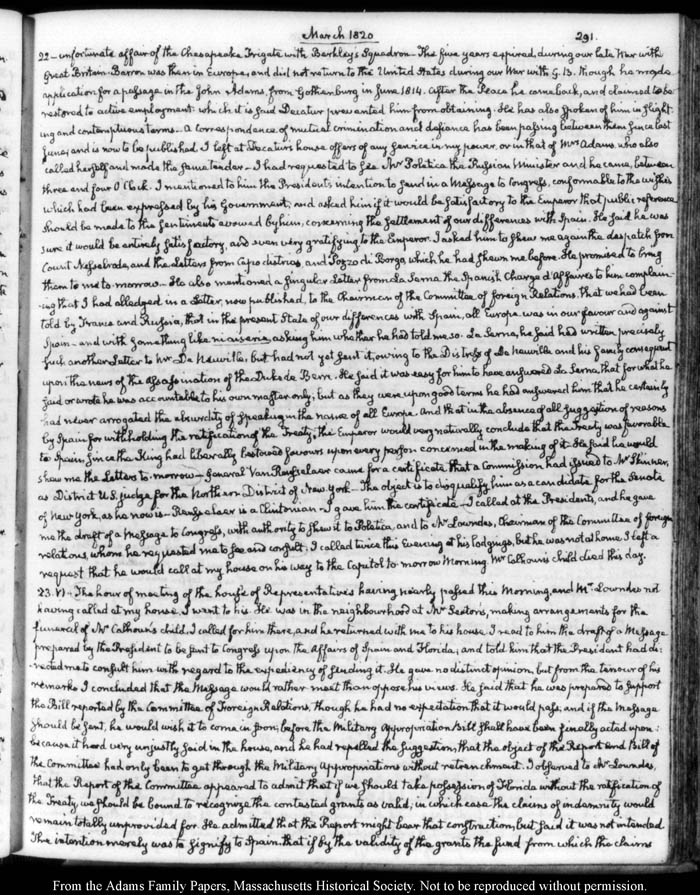 March 1820 291.
22 – unfortunate affair of the Chesapeake Frigate with Berkley's Squadron – The five years expired, during our late War with
Great Britain. Barron was then in Europe, and did not return to the United States during our War with G. B. though he made
application for a passage in the John Adams, from Gothenburg in June 1814. After the Peace he came back, and claimed to be
restored to active employment: which it is said Decatur prevented him from obtaining. He has also spoken of him in slight-
ing and contemptuous terms – A correspondence of mutual crimination and defiance has been passing between them since last
June, and is now to be published. I left at Decatur's house offers of any service in my power, or in that of Mrs Adams, who also
called herself and made the same tender – I had requested to see Mr Politica the Russian Minister and he came, between
three and four O'Clock. I mentioned to him the President's intention to send in a Message to Congress, conformable to the wishes
which had been expressed by his Government, and asked him if it would be satisfactory to the Emperor that public reference
should be made to the sentiments avowed by him, concerning the settlement of our differences with Spain. He said he was
sure it would be entirely satisfactory, and even very gratifying to the Emperor. I asked him to shew me again the despatch from
Count Nesselrode, and the Letters from Capo distrias, and Pozzo di Borgo which he had shewn me before. He promised to bring
them to me to-morrow – He also mentioned a singular Letter from La Serna the Spanish Chargé d'Affaires to him complain-
-ing that I had alledged in a Letter, now published, to the Chairman of the Committee of foreign Relations, that we had been
told by France and Russia, that in the present State of our differences with Spain, all Europe was in our favour and against
Spain – and with something like niaiserie, asking him whether he had told me so. La Serna, he said had written precisely
such another Letter to Mr De Neuville, but had not yet sent it, owing to the Distress of De Neuville and his family consequent
upon the news of the assassination of the Duke de Berri. He said it was easy for him to have answered La Serna, that for what he
said or wrote he was accountable to his own master only; but as they were upon good terms he had answered him that he certainly
had never arrogated the absurdity of speaking in the name of all Europe. And that in the absence of all suggestion of reasons
by Spain for withholding the ratification of the Treaty, the Emperor would very naturally conclude that the Treaty was favorable
to Spain, since the King had liberally bestowed favours upon every person concerned in the making of it. He said he would
shew me the Letters to-morrow – General Van Rensselaer came for a certificate that a Commission had issued to Mr Skinner,
as District U.S. judge for the Northern District of New-York – The object is to disqualify him as a candidate for the Senate
of New York, as he now is – Rensselaer is a Clintonian – I gave him the certificate – I called at the Presidents, and he gave
me the draft of a Message to Congress, with authority to shew it to Politica, and to Mr Lowndes, Chairman of the Committee of foreign
relations, whom he requested me to see and consult. I called twice this Evening at his lodgings, but he was not at home. I left a
request that he would call at my house on his way to the Capitol to-morrow Morning. Mr Calhoun's child died this day.
23. VI – The hour of meeting of the house of Representatives having nearly passed this Morning, and Mr Lowndes not
having called at my house, I went to his. He was in the neighbourhood at Mr making arrangements for the
funeral of Mr Calhoun's child. I called for him there, and he returned with me to his house. I read to him the draft of a Message
prepared by the President to be sent to Congress upon the Affairs of Spain and Florida; and told him that the President had de:
:rected me to consult him with regard to the expediency of sending it. He gave no distinct opinion, but from the tenour of his
remarks I concluded that the Message would rather meet than oppose his views. He said that he was prepared to support
the Bill reported by the Committee of Foreign Relations, though he had no expectation that it would pass, and if the Message
should be sent, he would wish it to come in soon; before the Military Appropriation Bill shall have been finally acted upon:
because it had very unjustly said in the house, and he had repelled the suggestion, that the object of the Report and Bill of
the Committee had only been to get through the Military Appropriations without retrenchment. I observed to Mr Lowndes,
that the Report of the Committee appeared to admit that if we should take possession of Florida without the ratification of
the Treaty, we should be bound to recognize the contested grants as valid; in which case the claims of indemnity would
remain totally unprovided for. He admitted that the Report might bear that construction, but said it was not intended
The intention merely was to signify to Spain that if by the validity of the grants the fund from which the claims
From the Adams Family Papers, Massachusetts Historical Society. Not to be reproduced without permission.